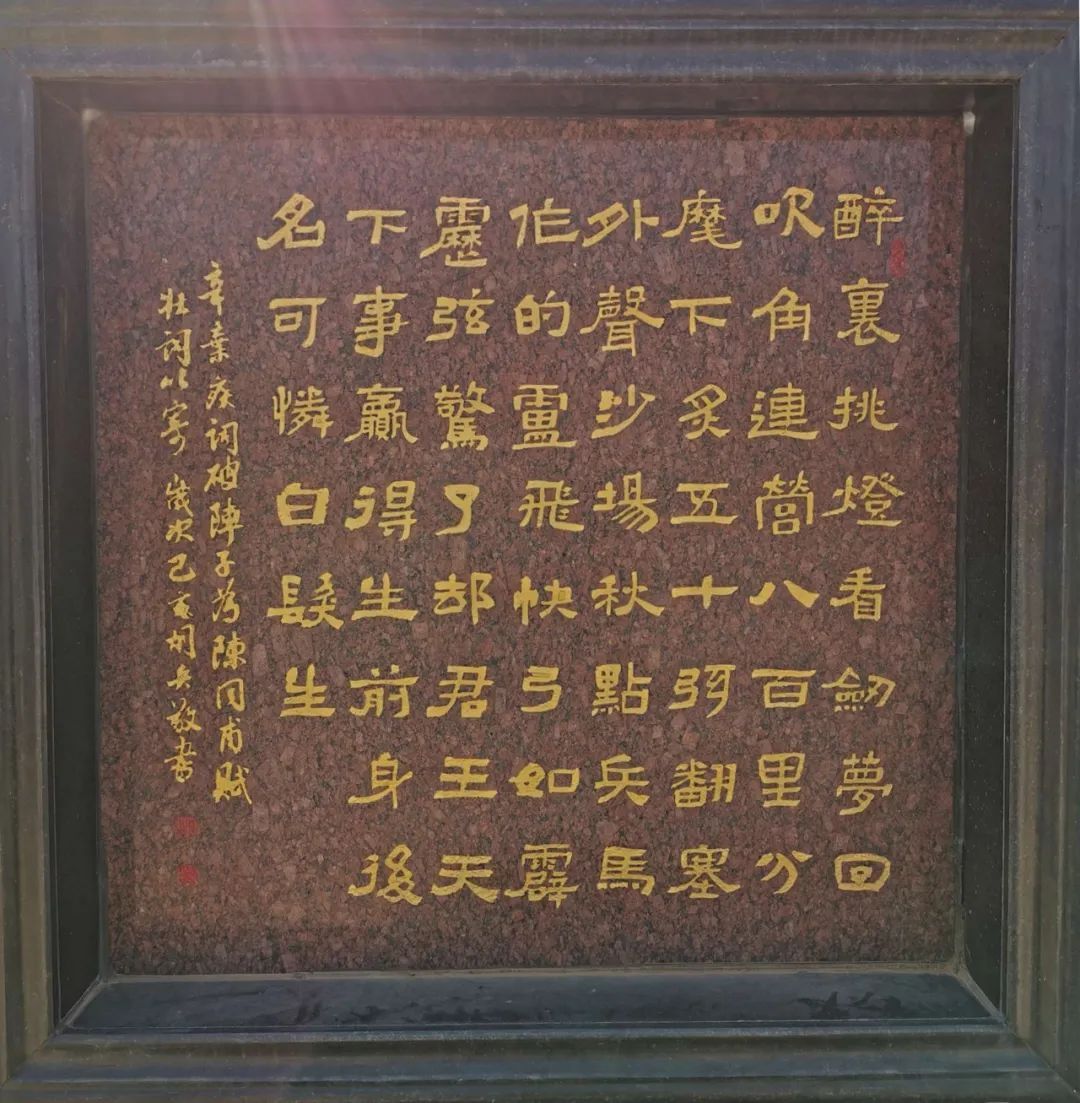 醉裏挑燈看劒夢回
吹角連營八百里分
麾下炙五十弦翻塞
外聲沙場秋點兵馬
作的盧飛快弓如霹
靂弦驚了却君王天
下事贏得生前身後
名可憐白髮生
辛棄疾詞破陣子為陳同甫賦
壯詞以寄 歲次己亥胡兵敬書